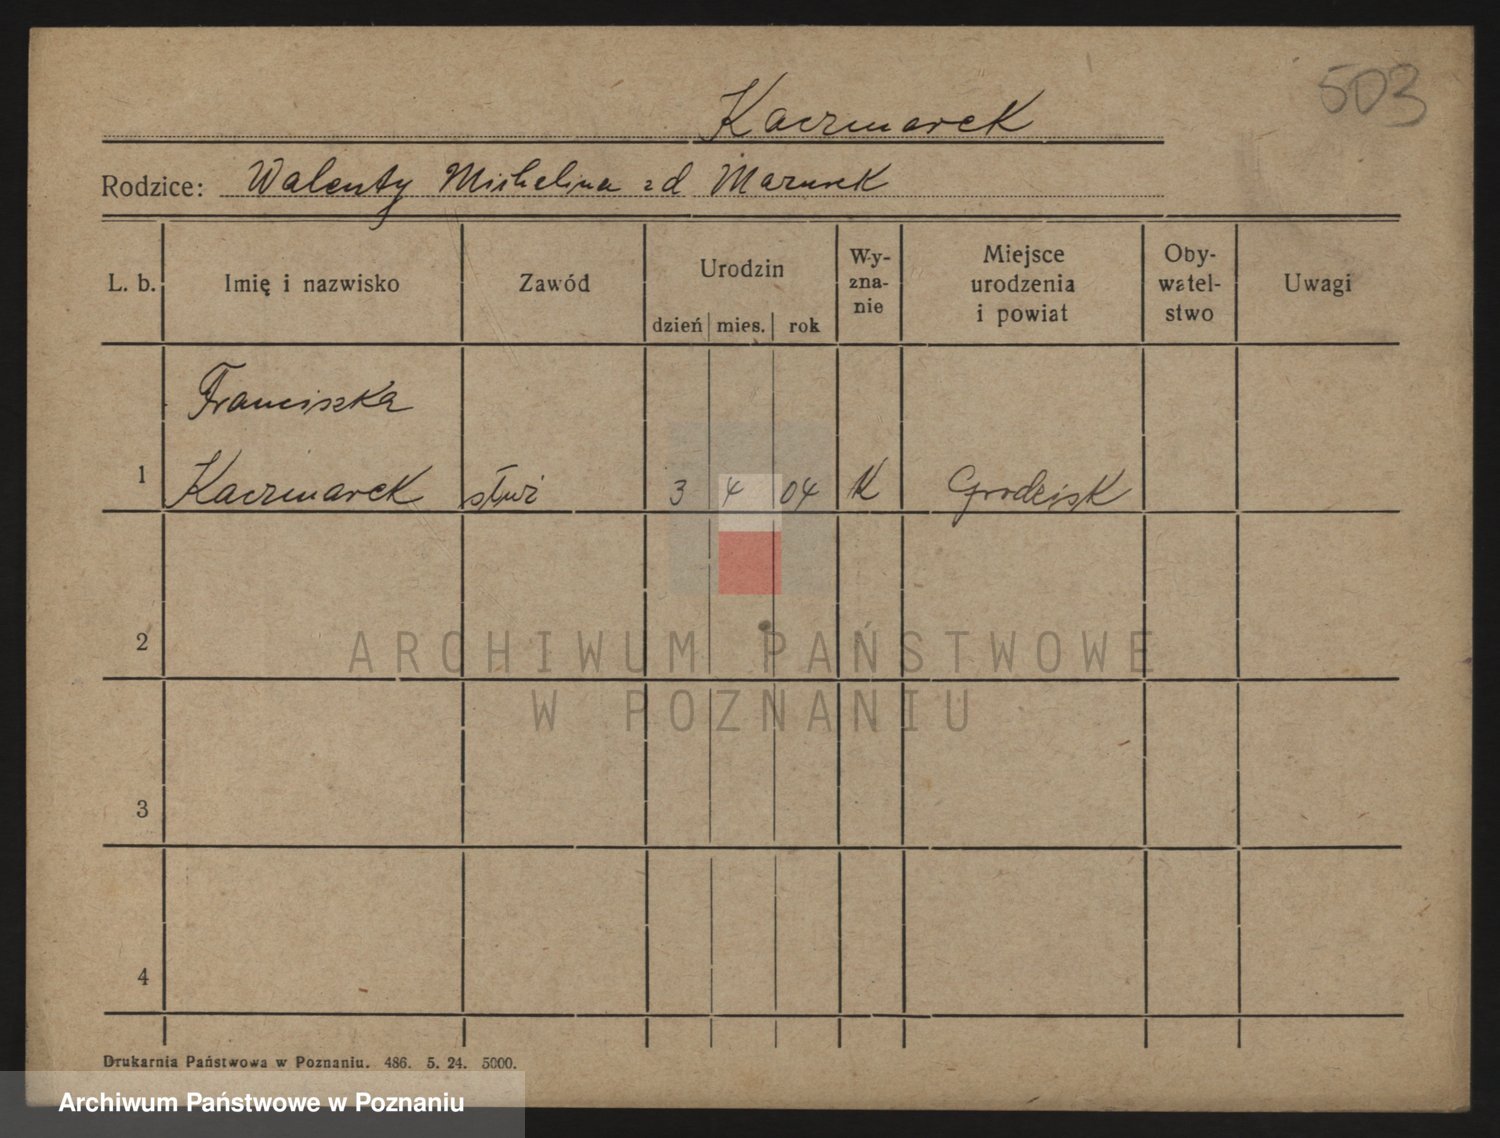 503
Kaczmarek
Rodzice: Walenty Michelina zd Mazurek
L. b. Imię i nazwisko Zawód Urodzin dzień mies. rok Wy-zna-nie Miejsce urodzenia i powiat Oby-watel-stwo Uwagi
Franciszka
1 Kaczmarek służ 3 4 04 K Grodzisk
2
ARCHIWUM PAŃSTWOWE
W POZNANIU
3
4
Drukarnia Państwowa w Poznaniu. 486. 5. 24. 5000.
Archiwum Państwowe w Poznaniu